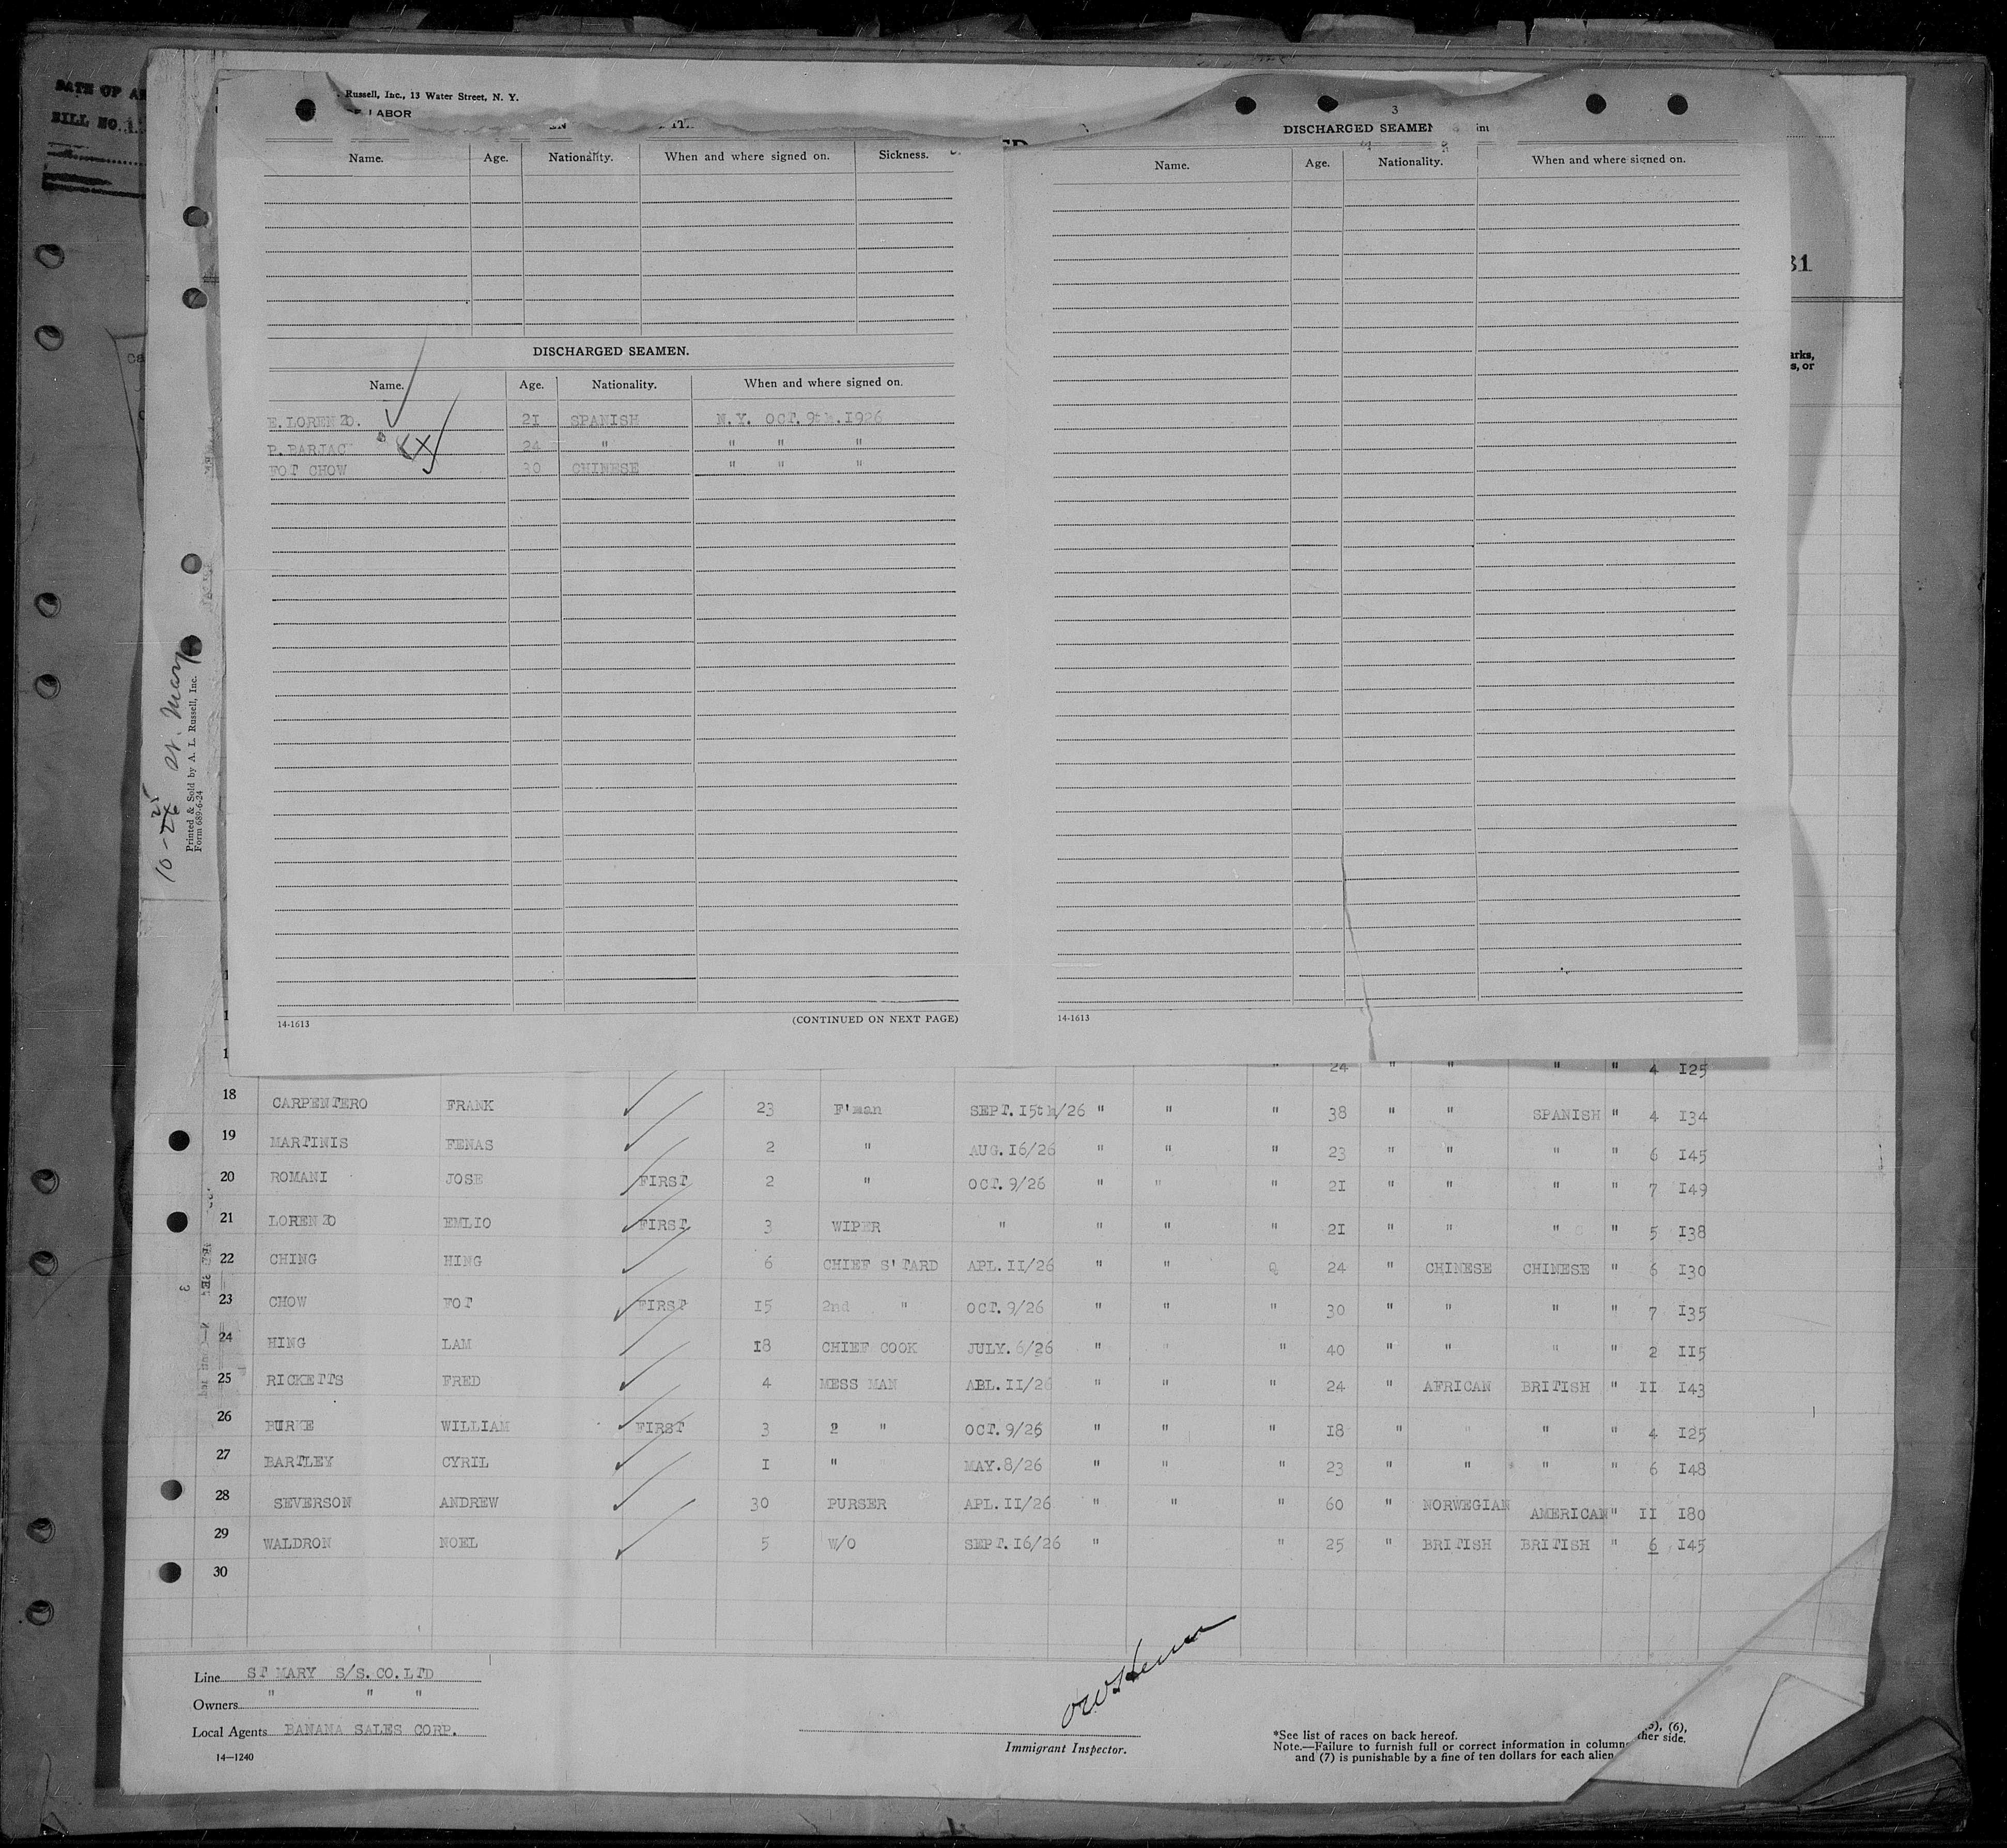 DATE OF
BILL NO.
Russell, Inc., 13 Water Street, N. Y.
LABOR
Name. Age. Nationality. When and where signed on. Sickness.
DISCHARGED SEAMEN.
Name. Age. Nationality. When and where signed on.
E. LORENZO. 21 SPANISH N.Y. OCT. 9th. 1926
P. BARJAC 24 " " " "
FOT CHOW 30 CHINESE " " "
14-1613 (CONTINUED ON NEXT PAGE)
3
DISCHARGED SEAMEN
Name. Age. Nationality. When and where signed on.
14-1613
31
arks,
s, or
10-25 St. Mary
Printed & Sold by A. L. Russell, Inc.
Form 689-6-24
" 24 " " " " 4 125
18 CARPENTERO FRANK 23 F'man SEPT. 15th/26 " " " 38 " " SPANISH " 4 134
19 MARTINIS FENAS 2 " AUG. 16/26 " " " 23 " " " " 6 145
20 ROMANI JOSE FIRST 2 " OCT. 9/26 " " " 21 " " " " 7 149
21 LORENZO EMLIO FIRST 3 WIPER " " " " 21 " " " " 5 138
22 CHING HING 6 CHIEF S'TARD APL. 11/26 " " 24 " CHINESE CHINESE " 6 130
23 CHOW FOT FIRST 15 2nd " OCT. 9/26 " " " 30 " " " " 7 135
24 HING LAM 18 CHIEF COOK JULY. 6/26 " " " 40 " " " " 2 115
25 RICKETTS FRED 4 MESS MAN ABL. 11/26 " " " 24 " AFRICAN BRITISH " 11 143
26 BURKE WILLIAM FIRST 3 2 " OCT. 9/26 " " " 18 " " " " 4 125
27 BARTLEY CYRIL 1 " MAY. 8/26 " " " 23 " " " " 6 148
28 SEVERSON ANDREW 30 PURSER APL. 11/26 " " " 60 " NORWEGIAN AMERICAN " 11 180
29 WALDRON NOEL 5 W/O SEPT. 16/26 " " 25 " BRITISH BRITISH " 6 145
30
Line ST MARY S/S. CO. LTD
Owners " " "
Local Agents BANANA SALES CORP.
14—1240
Immigrant Inspector.
*See list of races on back hereof.
Note.—Failure to furnish full or correct information in column (5), (6),
and (7) is punishable by a fine of ten dollars for each alien
ther side.